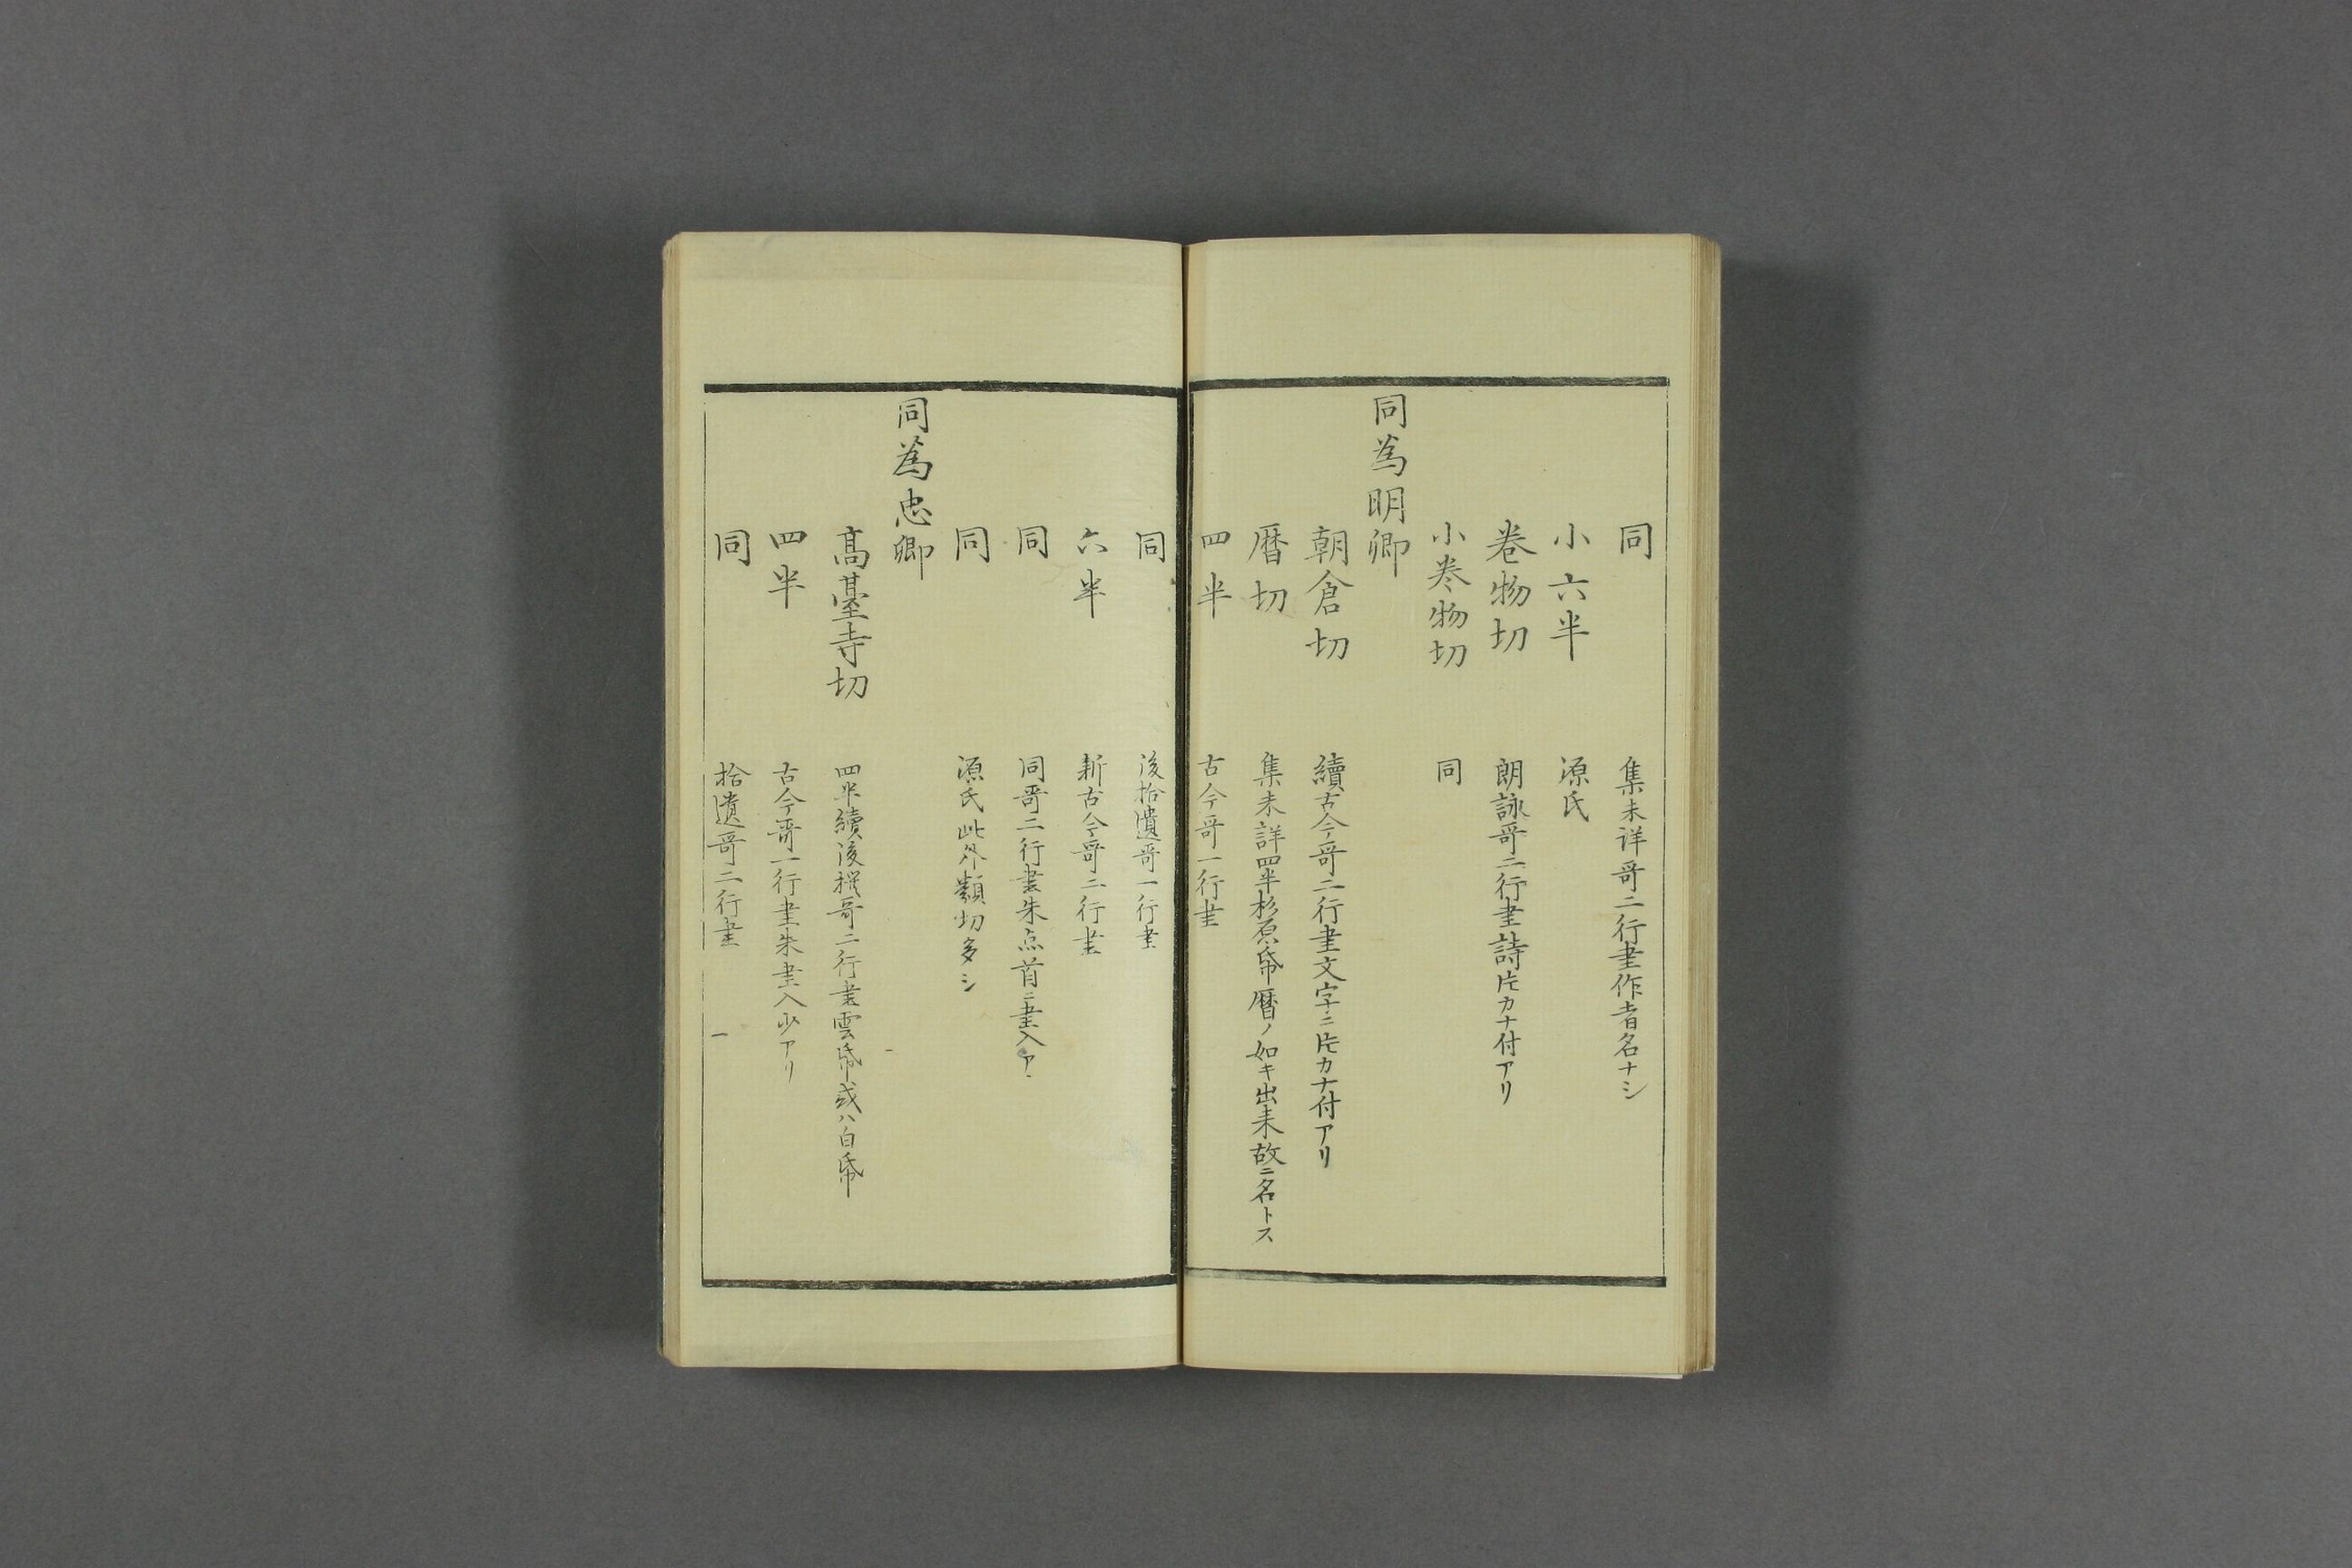 同　集未詳哥二行書作者名ナシ
小六半　源氏
巻物切　朗詠哥二行書詩片カナ付アリ
小巻物切　同
同為明卿
朝倉切　續古今哥二行書文字ニ片カナ付アリ
暦切　集未詳四半杉原帋暦ノ如キ出来故ニ名トス
四半　古今哥一行書
同　後拾遺哥一行書
六半　新古今哥二行書
同　同哥二行書朱点首ニ書入ア
同　源氏此外類切多シ
同為忠卿
高臺寺切　四半續後撰哥二行書雲帋或ハ白帋
四半　古今哥一行書朱書入少アリ
同　拾遺哥二行書